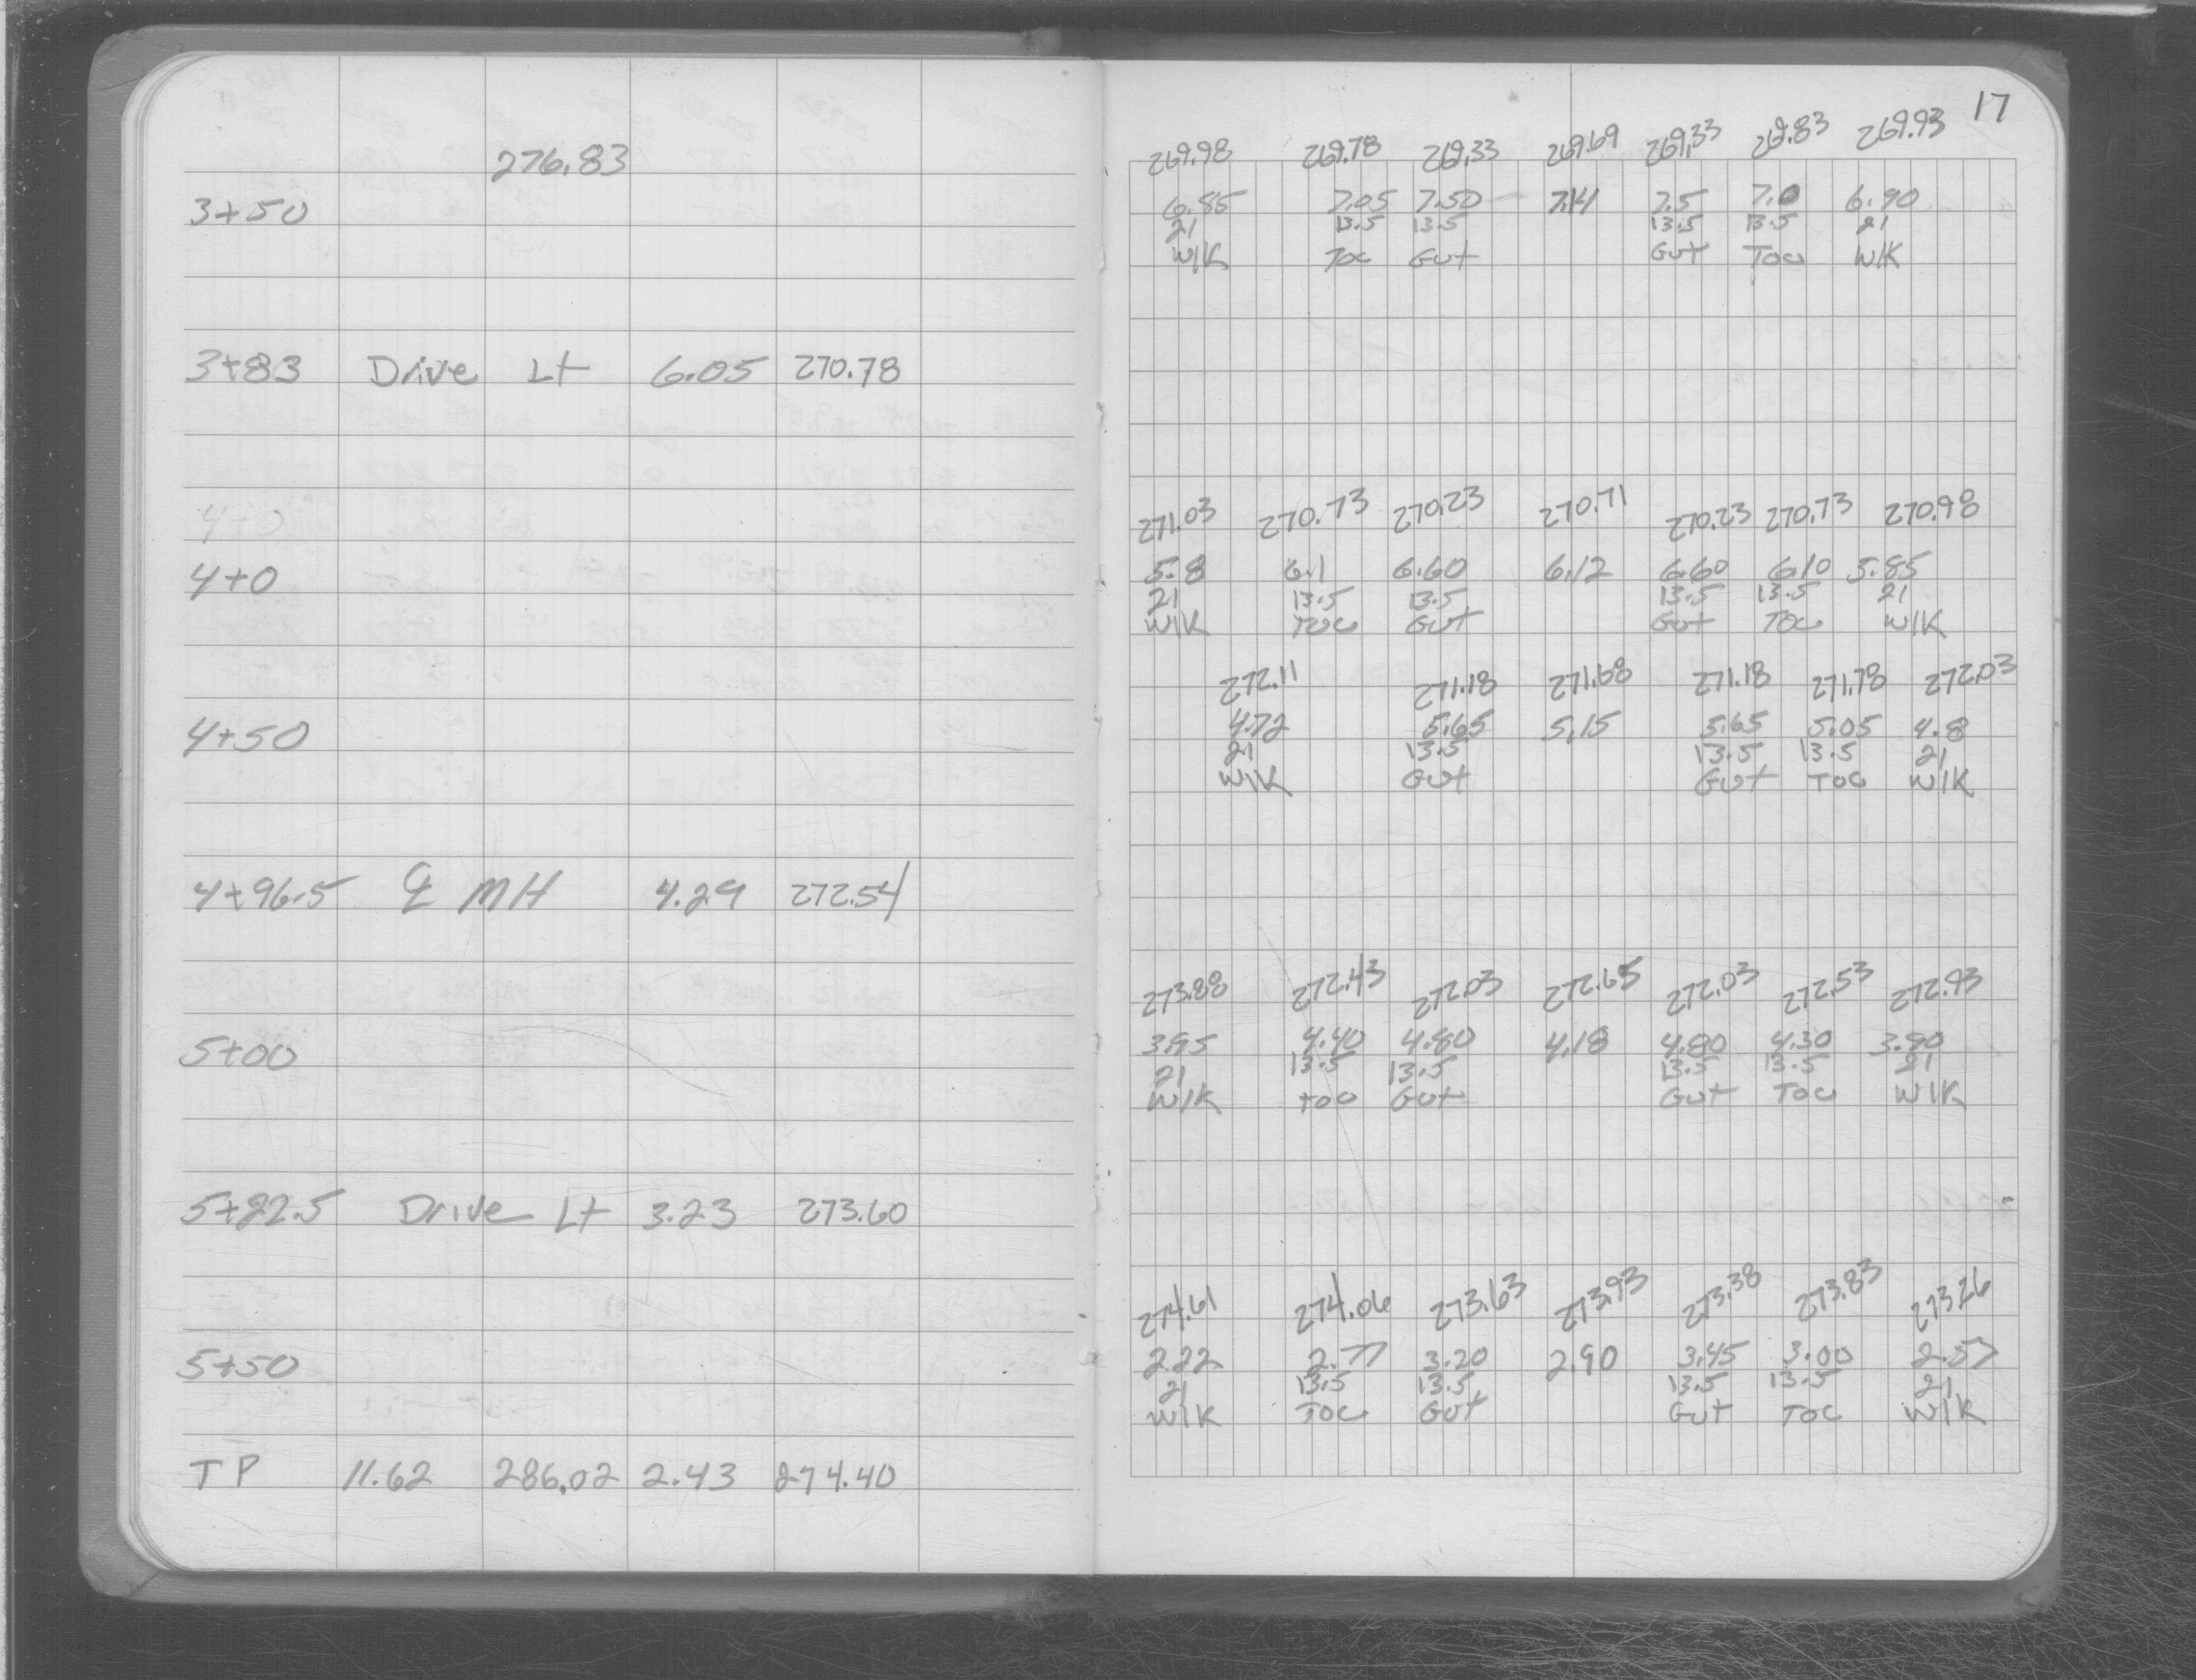 17
276.83
269.98 269.78 269.33 269.69 269.33 269.83 269.93
3+50 6.85 7.05 7.50 7.14 7.5 7.0 6.90
21 13.5 13.5 13.5 13.5 21
W/K TOC Gut Gut TOC W/K
3+83 Drive Lt 6.05 270.78
4+0
271.03 270.73 270.23 270.71 270.23 270.73 270.98
4+0 5.8 6.1 6.60 6.12 6.60 6.10 5.85
21 13.5 13.5 13.5 13.5 21
W/K TOC Gut Gut TOC W/K
272.11 271.18 271.68 271.18 271.78 272.03
4+50 4.72 5.65 5.15 5.65 5.05 4.8
21 13.5 13.5 13.5 21
W/K Gut Gut TOC W/K
4+96.5 ℄ MH 4.29 272.54
273.88 272.43 272.03 272.65 272.03 272.53 272.93
5+00 3.95 4.40 4.80 4.18 4.80 4.30 3.90
21 13.5 13.5 13.5 13.5 21
W/K TOC Gut Gut TOC W/K
5+22.5 Drive Lt 3.23 273.60
274.61 274.06 273.63 273.93 273.38 273.83 273.26
5+50 2.22 2.77 3.20 2.90 3.45 3.00 2.57
21 13.5 13.5 13.5 13.5 21
W/K TOC Gut Gut TOC W/K
TP 11.62 286.02 2.43 274.40